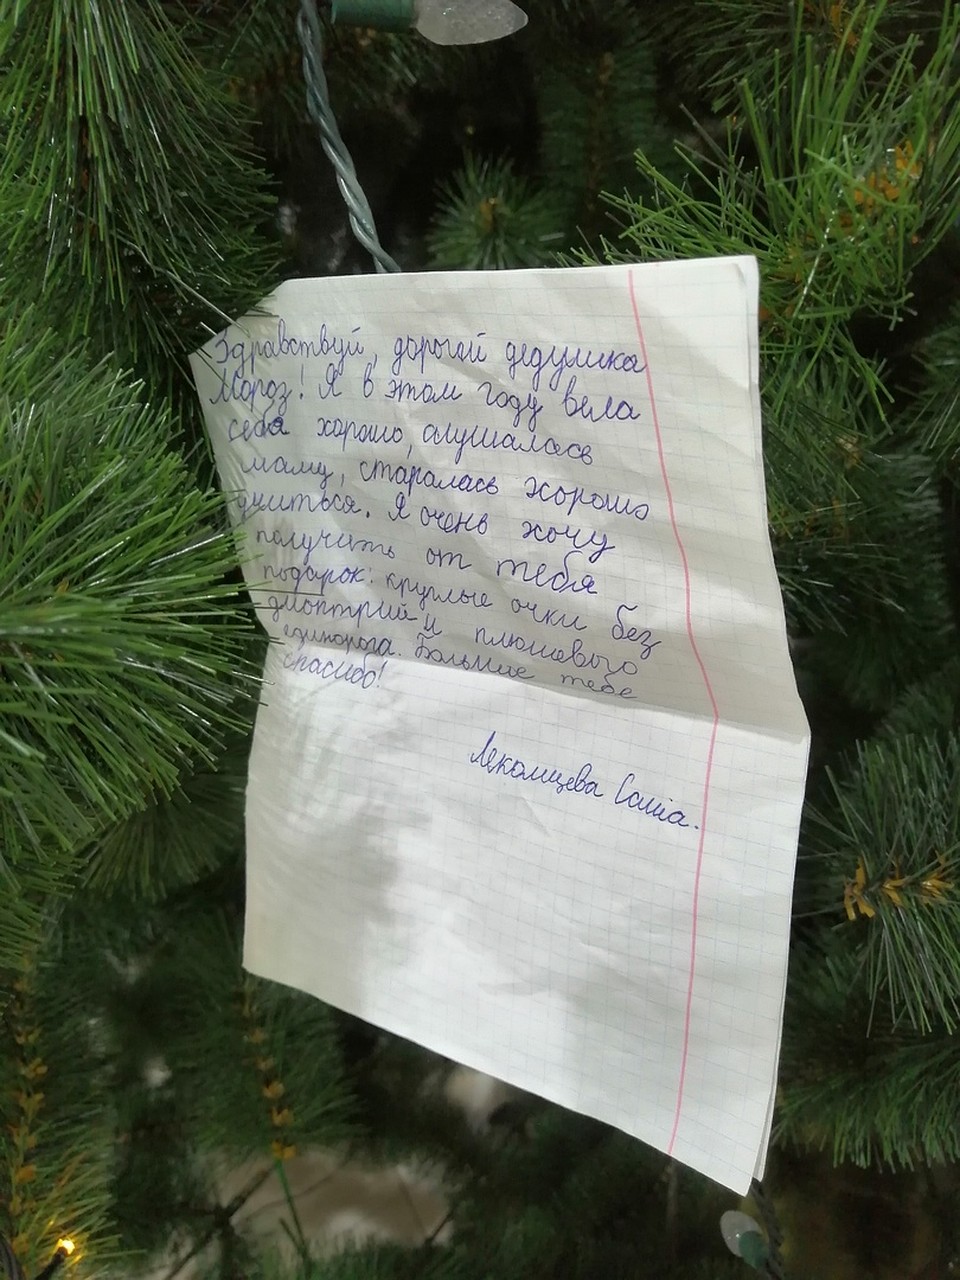 Здравствуй, дорогой дедушка
Мороз! Я в этом году вела
себя хорошо, слушалась
маму, старалась хорошо
учиться. Я очень хочу
получить от тебя
подарок: круглые очки без
диоптрий и плюшевого
единорога. Большое тебе
спасибо!
Лекомцева Саша.